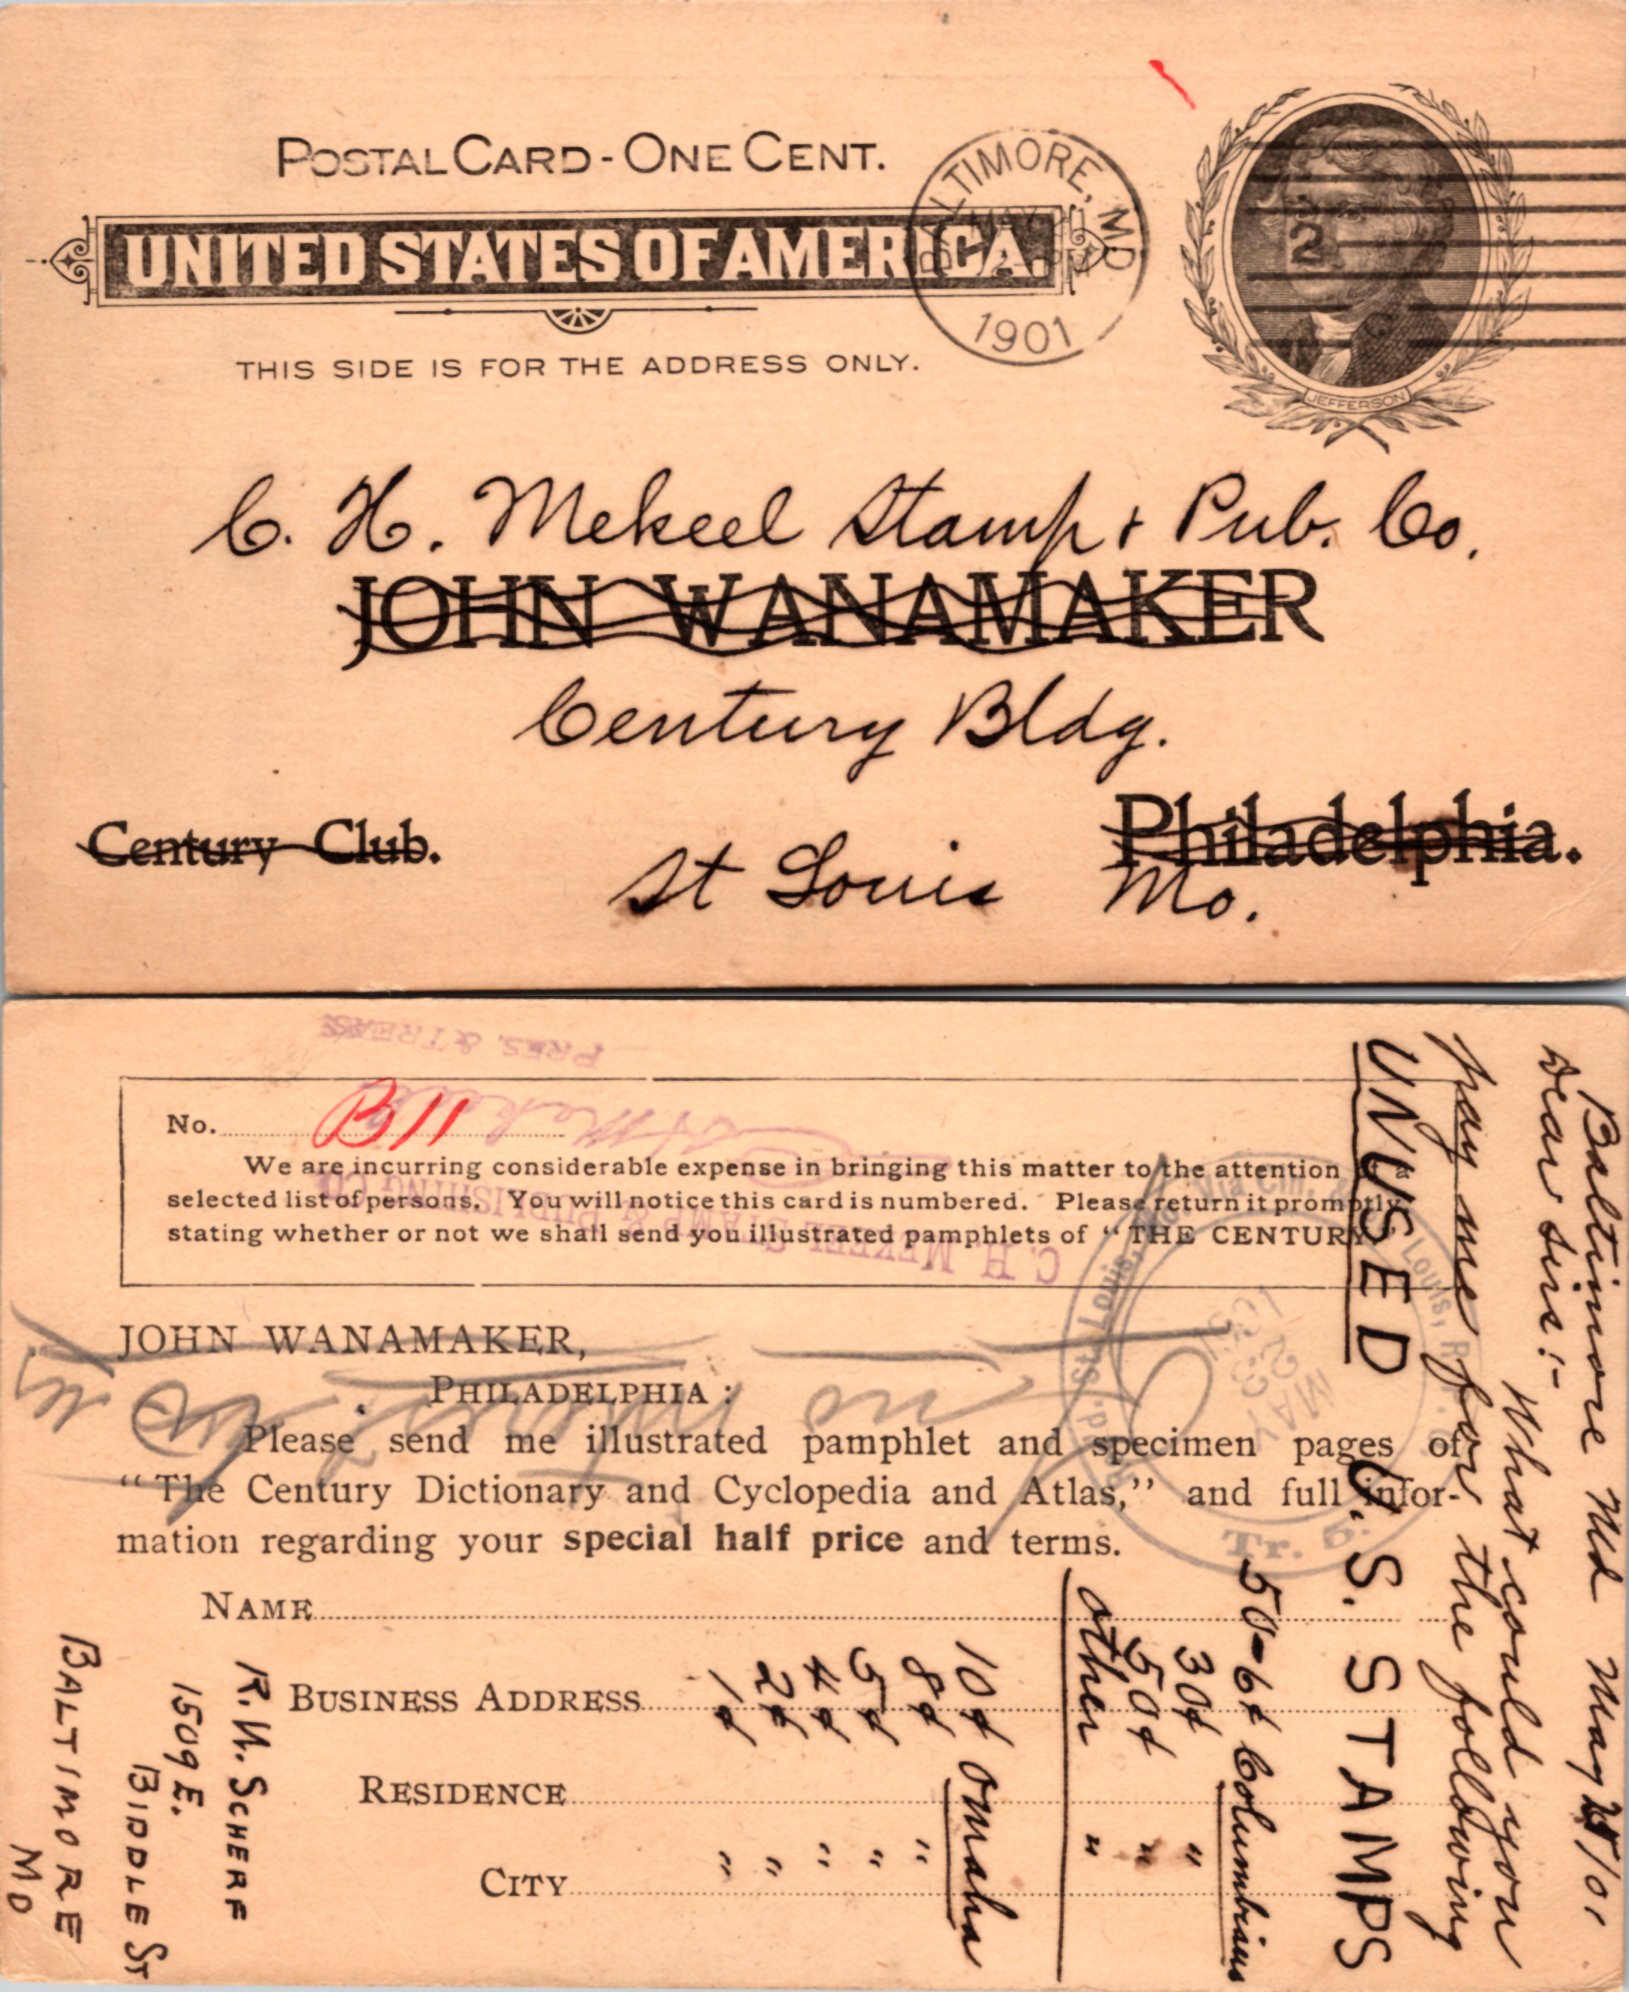 POSTAL CARD - ONE CENT.
UNITED STATES OF AMERICA.
THIS SIDE IS FOR THE ADDRESS ONLY.
BALTIMORE, MD
MAY
1901
2
JEFFERSON
C. H. Mekeel Stamp & Pub. Co.
JOHN WANAMAKER
Century Bldg.
Century Club.
Philadelphia.
St Louis Mo.
PRES. & TREAS
No. B11
C. H. MEKEEL STAMP & PUBLISHING CO
We are incurring considerable expense in bringing this matter to the attention of a
selected list of persons. You will notice this card is numbered. Please return it promptly,
stating whether or not we shall send you illustrated pamphlets of "THE CENTURY."
JOHN WANAMAKER,
PHILADELPHIA:
Please send me illustrated pamphlet and specimen pages of
"The Century Dictionary and Cyclopedia and Atlas," and full infor-
mation regarding your special half price and terms.
NAME
BUSINESS ADDRESS
RESIDENCE
CITY
St. Louis, Mo. Via Louis, R.
MAY
Tr. 5.
Baltimore Md May 25/01
Dear Sirs:- What could you
pay me for the following
UNUSED U. S. STAMPS
50-6¢ Columbians
30¢ "
50¢ "
other "
10¢ Omaha
8¢ "
5¢ "
4¢ "
2¢ "
1¢ "
R. W. SCHERF
1509 E.
BIDDLE ST
BALTIMORE
MD